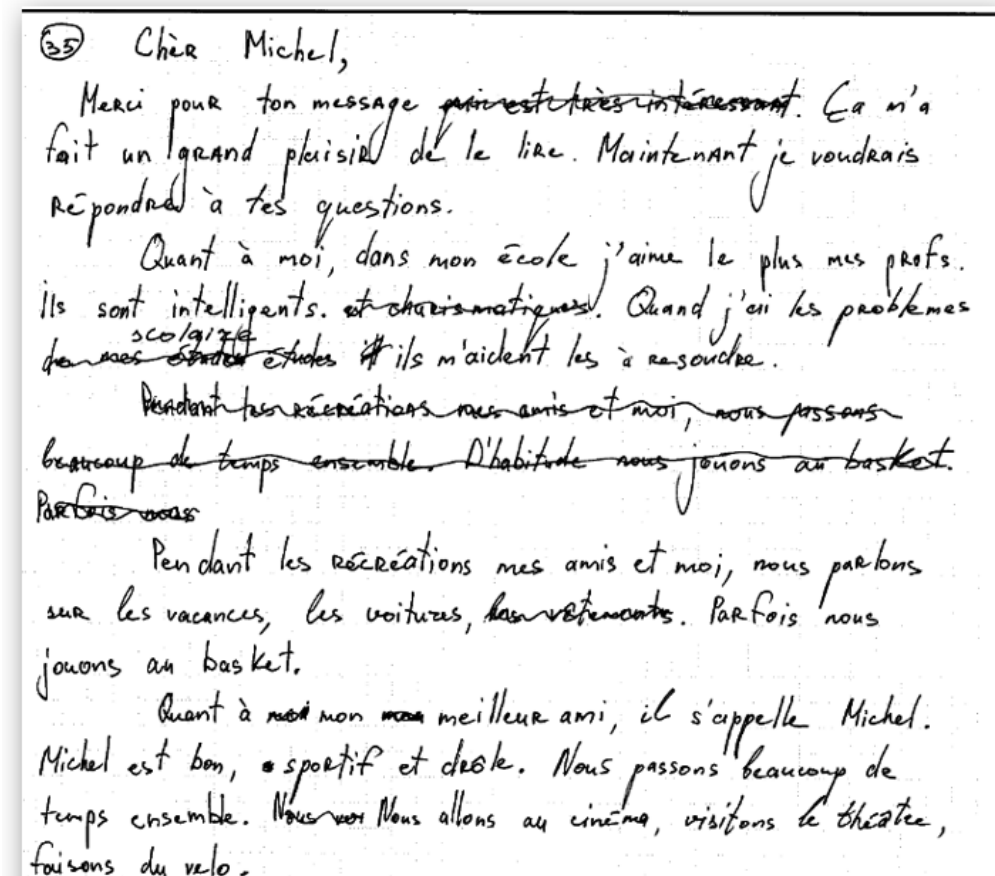 35 Chèr Michel,
Merci pour ton message qui est très intéressant. Ça m'a
fait un grand plaisir de le lire. Maintenant je voudrais
répondre à tes questions.
Quant à moi, dans mon école j'aime le plus mes profs.
Ils sont intelligents. et charismatiques. Quand j'ai les problèmes
scolaire
de mes études ils m'aident les à resoudre.
Pendant les récréations mes amis et moi, nous passons
beaucoup de temps ensemble. D'habitude nous jouons au basket.
Parfois nous
Pendant les récréations mes amis et moi, nous parlons
sur les vacances, les voitures, les vêtements. Parfois nous
jouons au basket.
Quant à moi mon meilleur ami, il s'appelle Michel.
Michel est bon, sportif et drôle. Nous passons beaucoup de
temps ensemble. Nous Nous allons au cinéma, visitons le théatre,
faisons du velo.